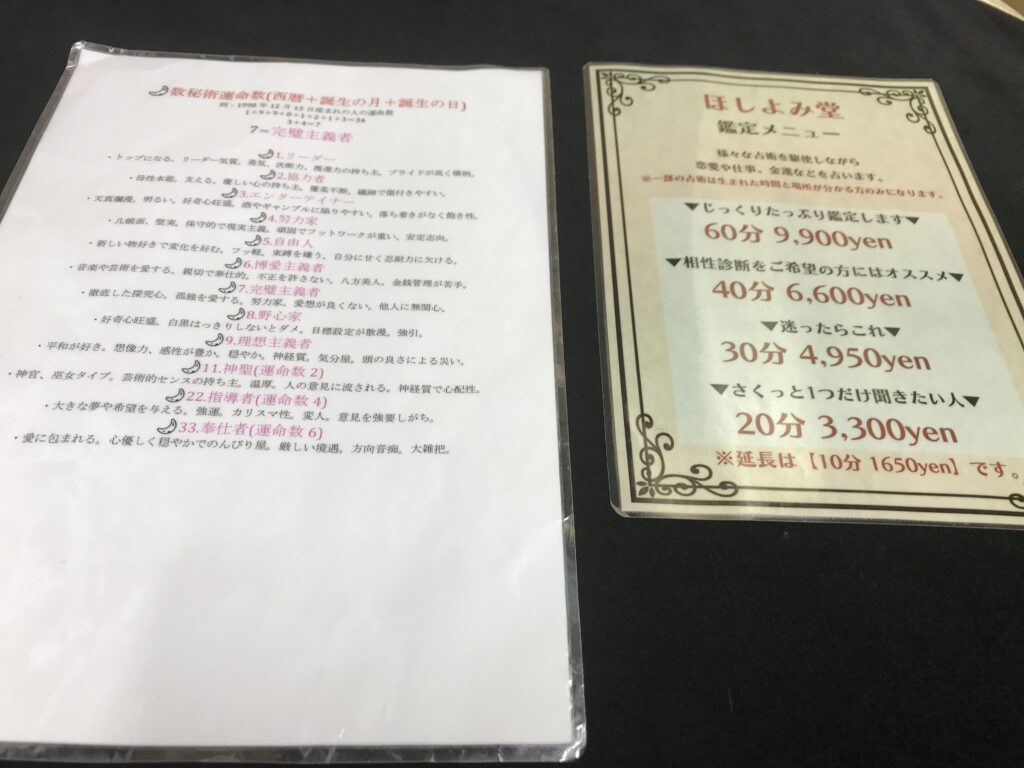 数秘術運命数(西暦＋誕生の月＋誕生の日)
例：1998年12月13日産まれの人の運命数
1+9+9+8+1+2+1+3=34
3+4=7
7＝完璧主義者
1.リーダー
・トップになる。リーダー気質。勇気、決断力、推進力の持ち主。プライドが高く横柄。
2.協力者
・母性本能。支える。優しい心の持ち主。優柔不断。繊細で傷付きやすい。
3.エンターテイナー
・天真爛漫。明るい。好奇心旺盛。酒やギャンブルに陥りやすい。落ち着きがなく飽き性。
4.努力家
・几帳面、堅実。保守的で現実主義。頑固でフットワークが重い。安定志向。
5.自由人
・新しい物好きで変化を好む。フッ軽。束縛を嫌う。自分に甘く忍耐力に欠ける。
6.博愛主義者
・音楽や芸術を愛する。親切で奉仕的。不正を許さない。八方美人。金銭管理が苦手。
7.完璧主義者
・徹底した探究心。孤独を愛する。努力家。愛想が良くない。他人に無関心。
8.野心家
・好奇心旺盛。白黒はっきりしないとダメ。目標設定が散漫。強引。
9.理想主義者
・平和が好き。想像力、感性が豊か。穏やか。神経質。気分屋。頭の良さによる災い。
11.神聖(運命数 2)
・神官、巫女タイプ。芸術的センスの持ち主。温厚。人の意見に流される。神経質で心配性。
22.指導者(運命数 4)
・大きな夢や希望を与える。強運。カリスマ性。変人。意見を強要しがち。
33.奉仕者(運命数 6)
・愛に包まれる。心優しく穏やかでのんびり屋。厳しい境遇。方向音痴。大雑把。
ほしよみ堂
鑑定メニュー
様々な占術を駆使しながら
恋愛や仕事、金運などを占います。
※一部の占術は生まれた時間と場所が分かる方のみになります。
▼じっくりたっぷり鑑定します▼
60分 9,900yen
▼相性診断をご希望の方にはオススメ▼
40分 6,600yen
▼迷ったらこれ▼
30分 4,950yen
▼さくっと1つだけ聞きたい人▼
20分 3,300yen
※延長は【10分 1650yen】です。